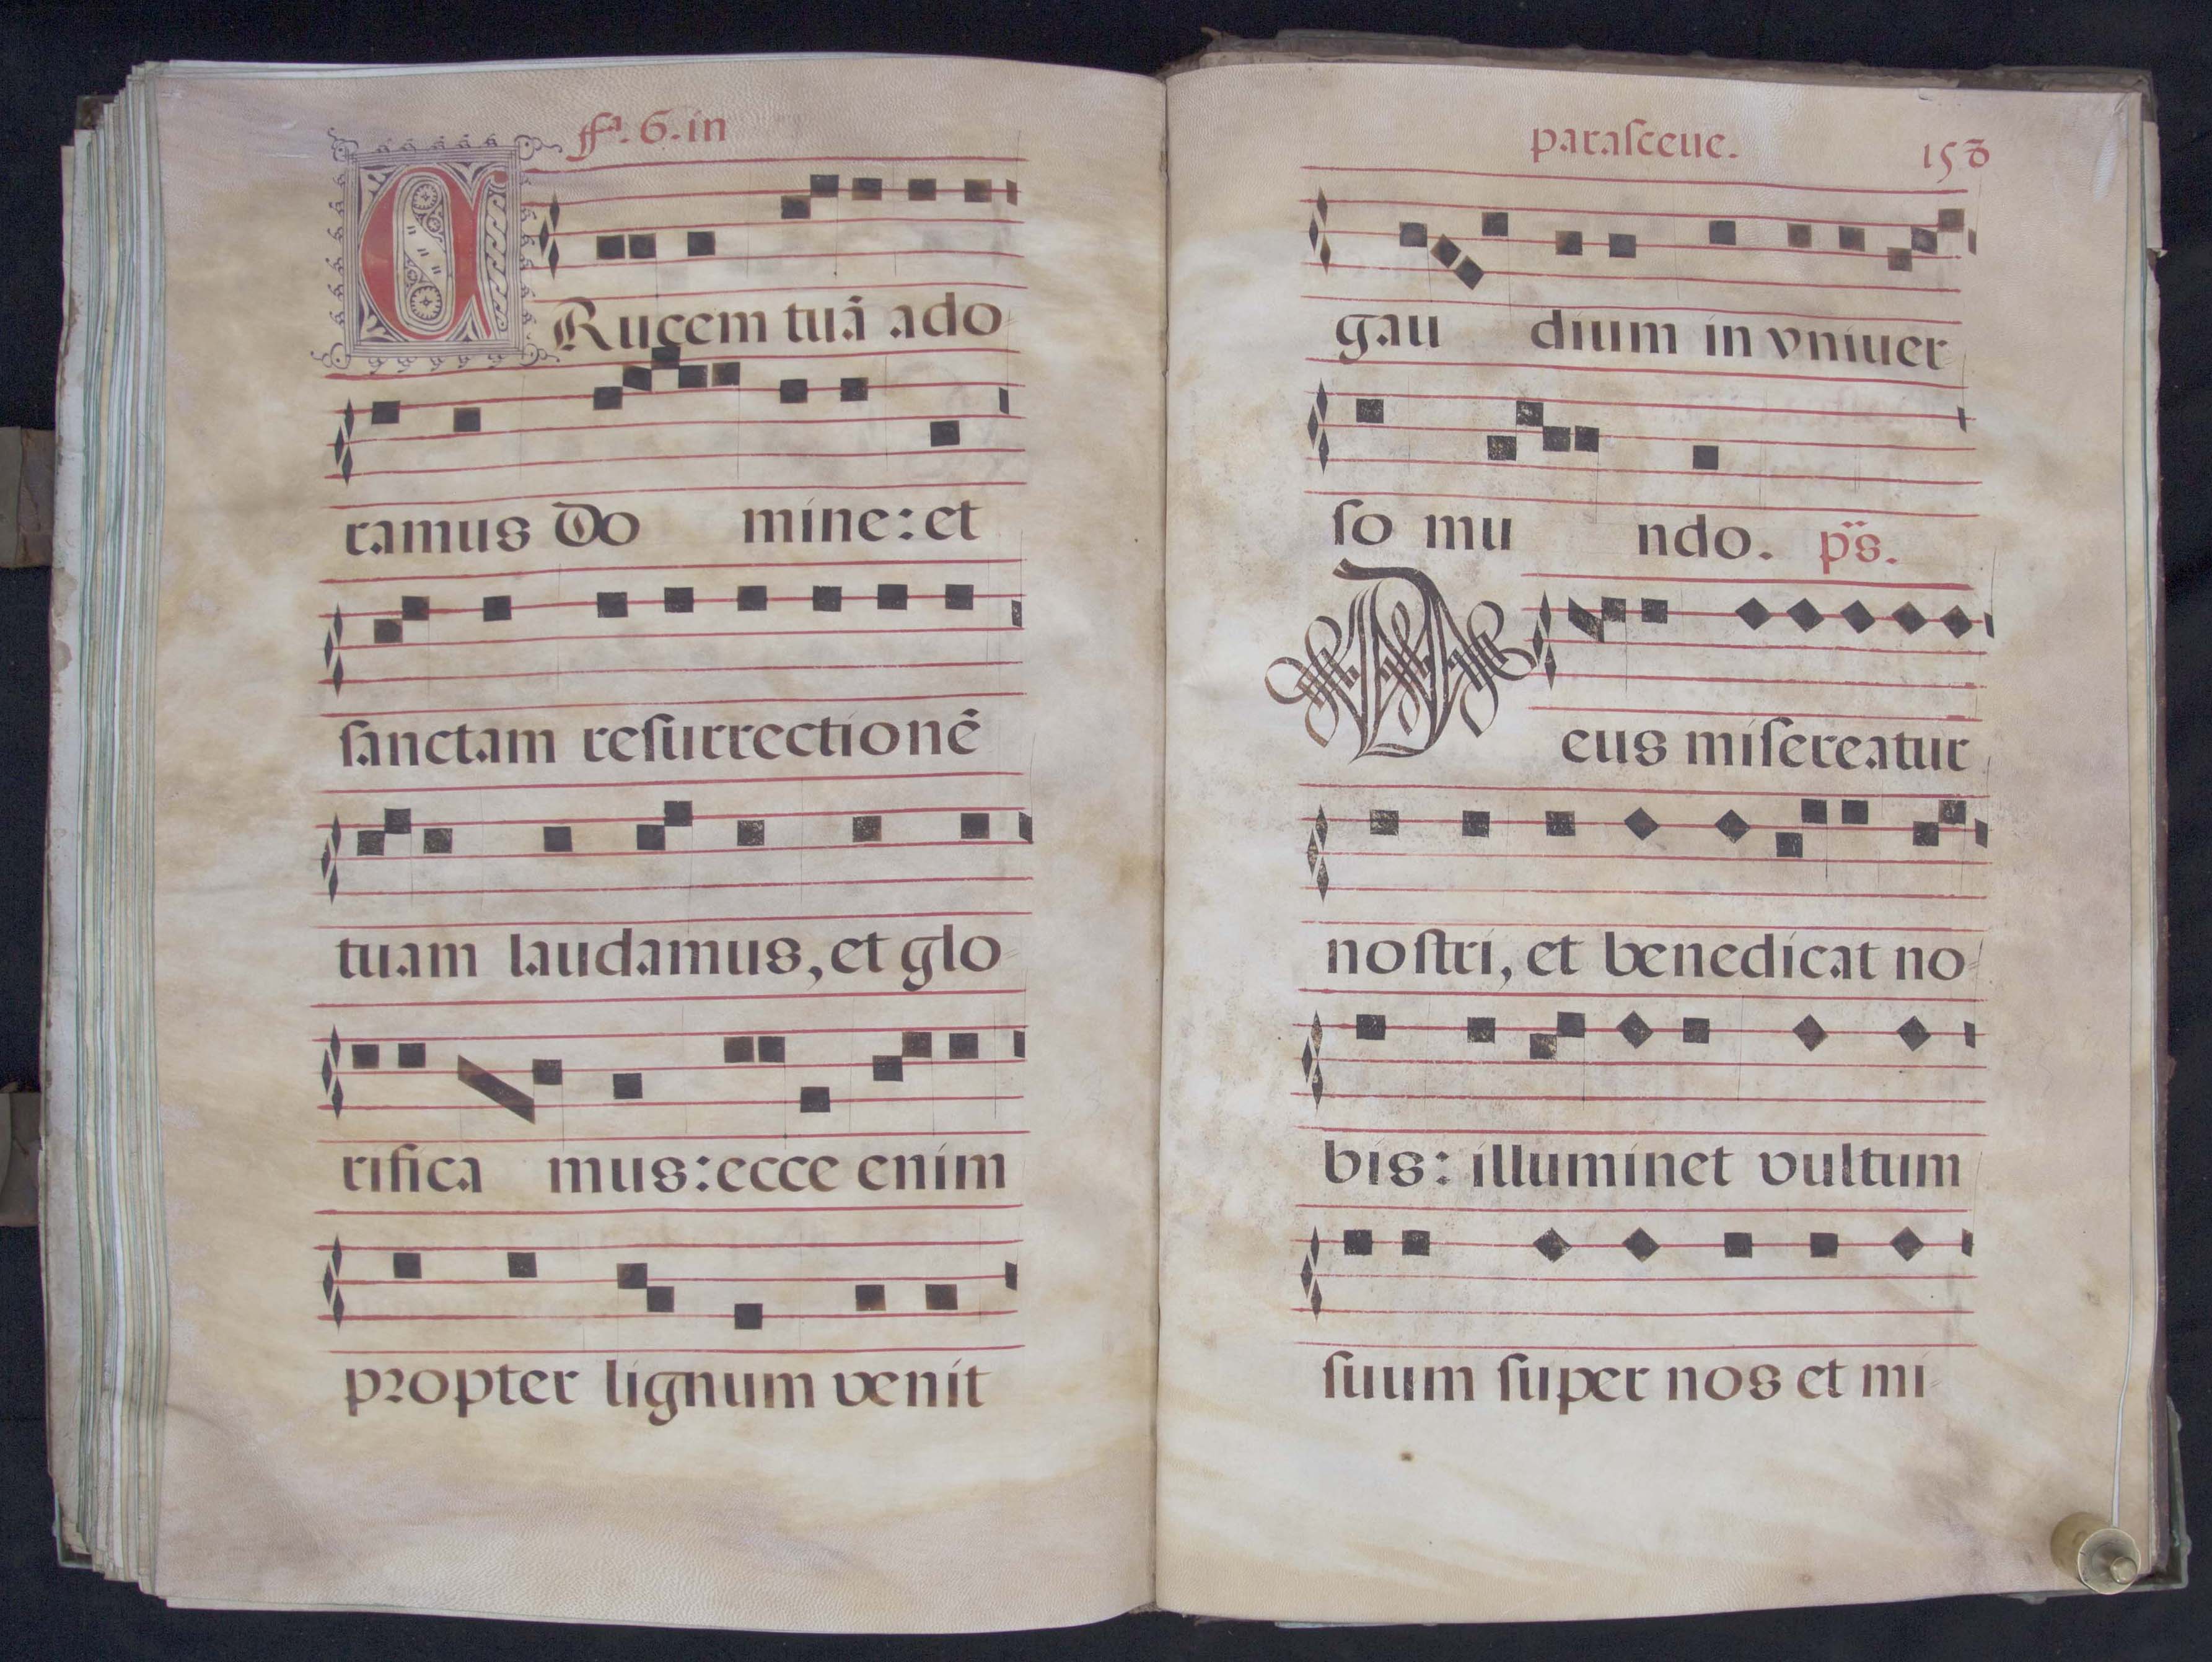 ffª. 6. in
CRucem tuā ado
ramus Do mine: et
ſanctam reſurrectionē
tuam laudamus, et glo
rifica mus: ecce enim
propter lignum venit
paraſceue. 158
gau dium in vniuer
ſo mu ndo. ps.
Deus miſereatur
noſtri, et benedicat no
bis: illuminet vultum
ſuum ſuper nos et mi